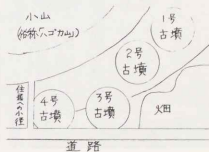 小山
(俗称「ハゴカ山」)
1号
古墳
2号
古墳
3号
古墳
4号
古墳
畑
住居への小径
道路